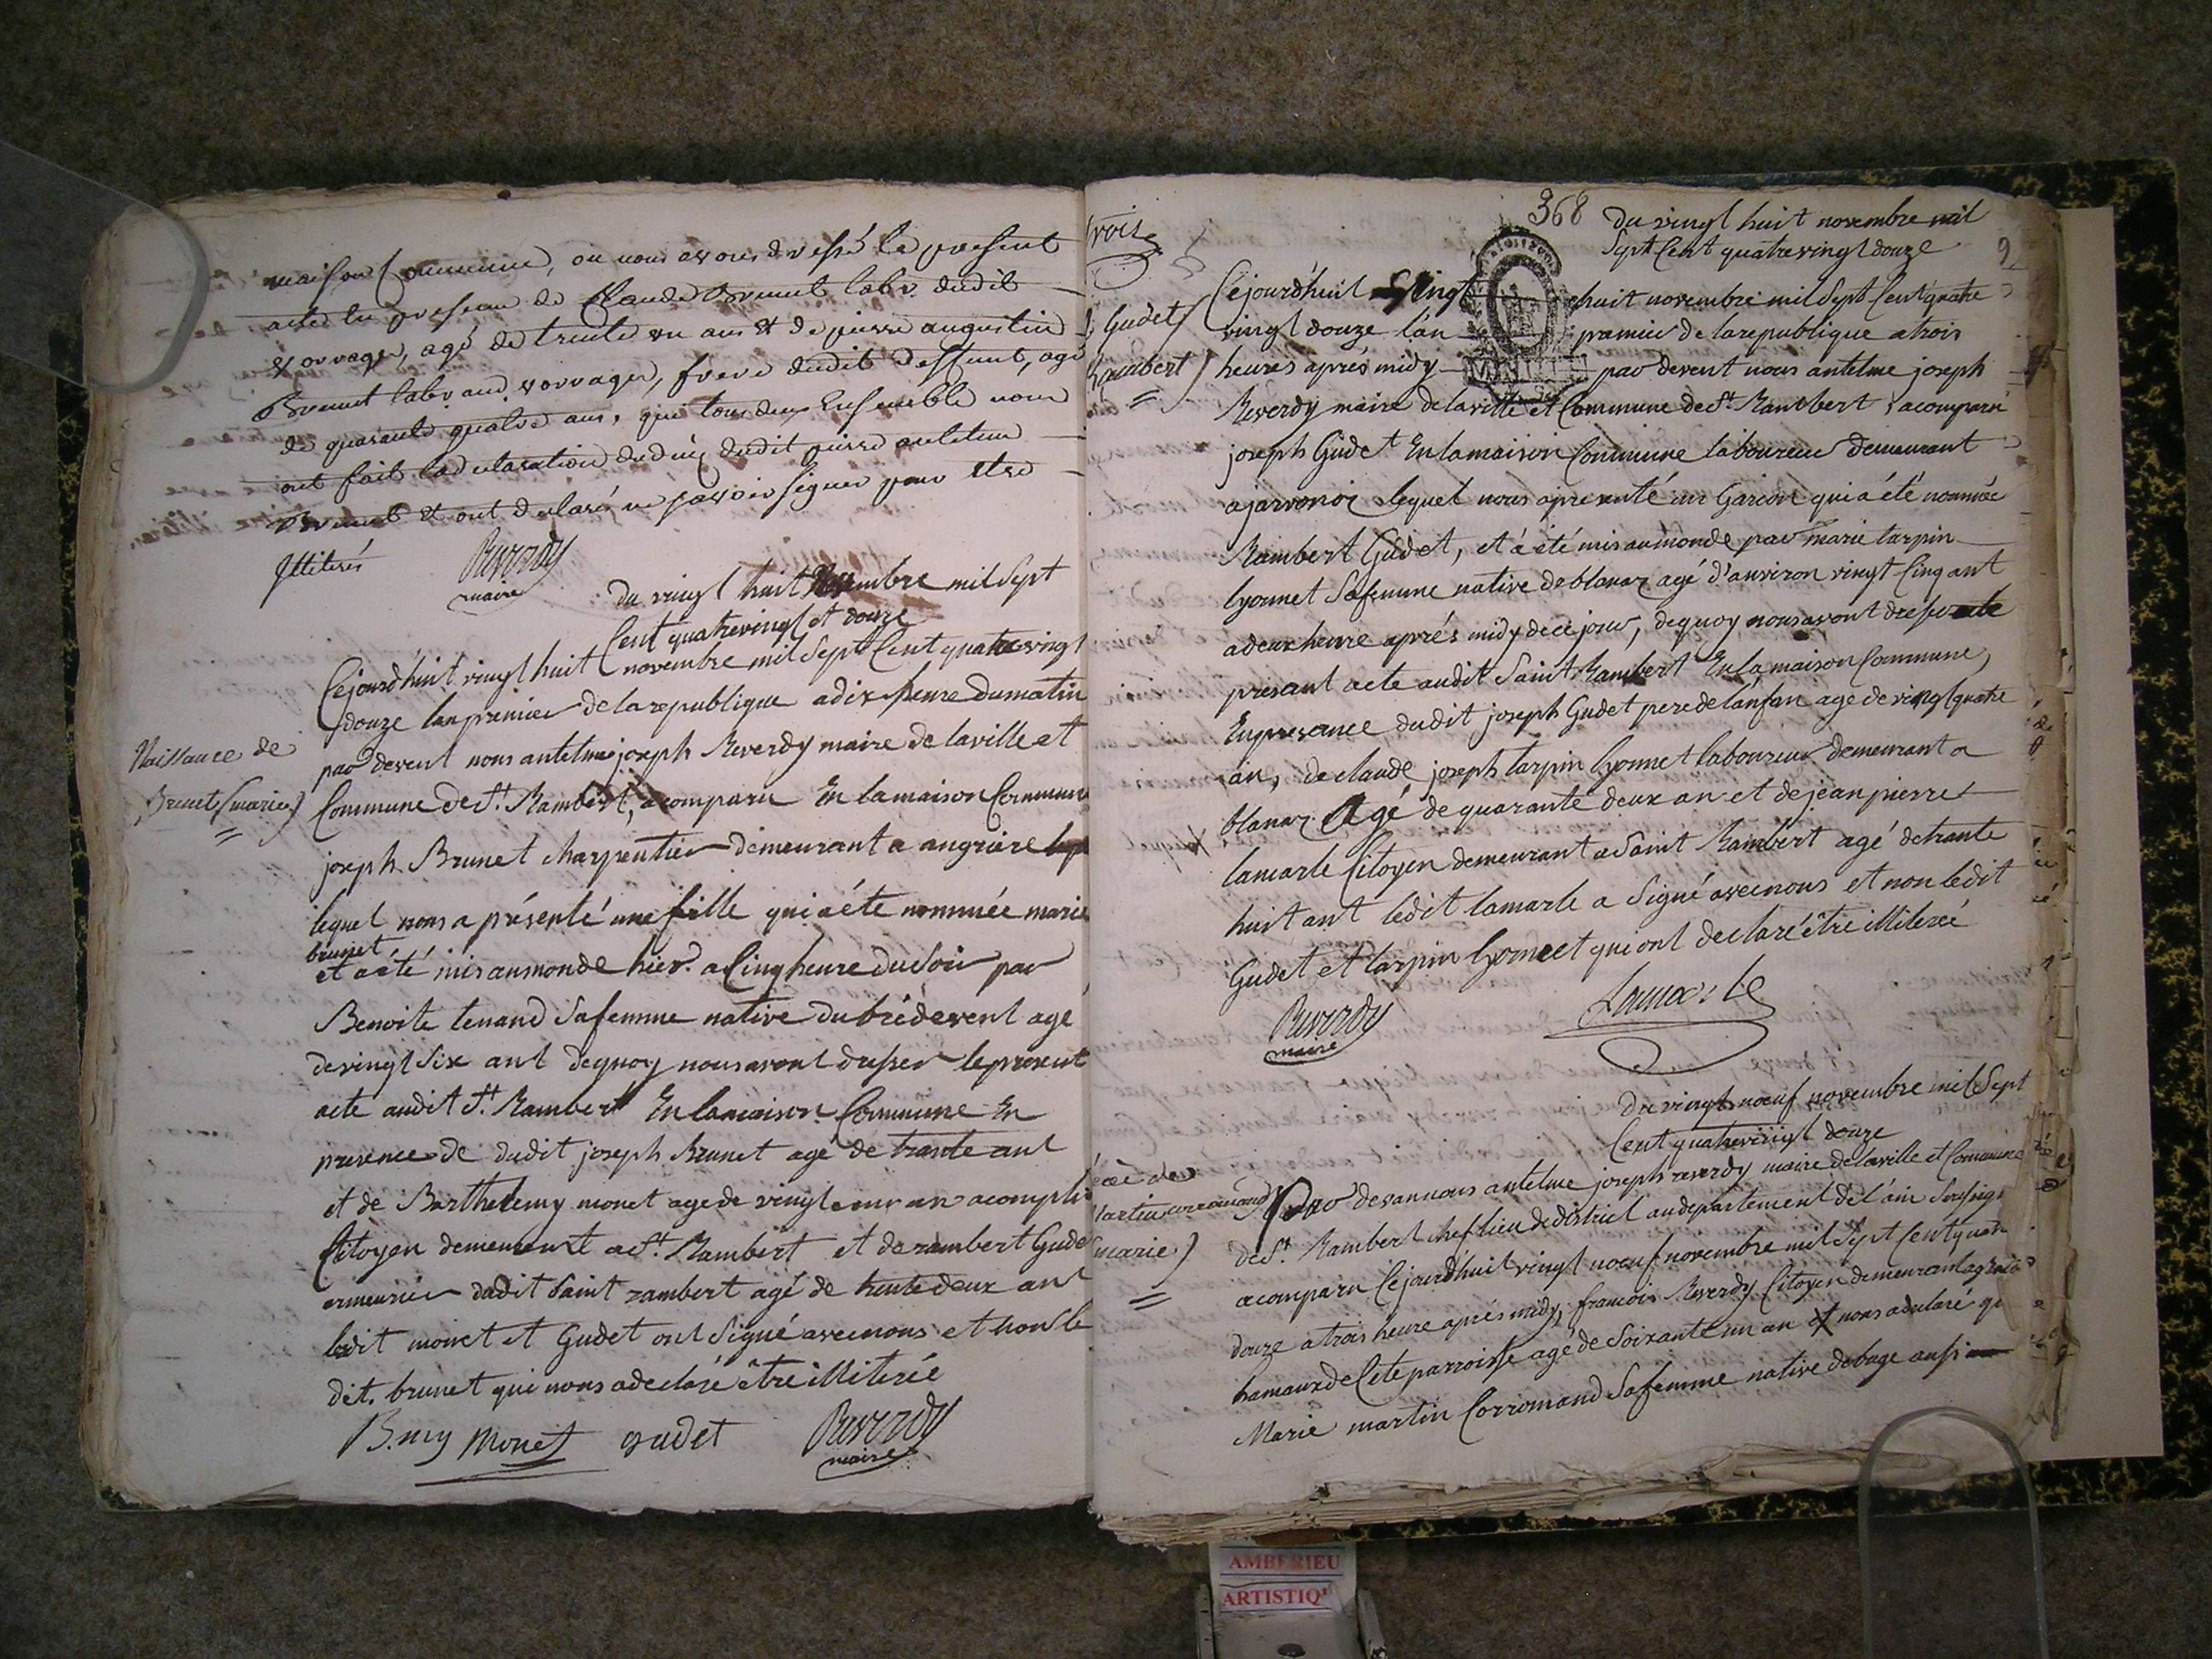 maison Commune, ou nous avons dressé le present
acte en presence de Claude Brunet labr. dudit
vorvages, agé de trente un ans et de pierre augustin
Brunet laboureur vorvages, frere dudit deffunt, agé
de quarante quatre ans, que tous deux Ensemble nous
ont fait la declaration du deces dudit pierre antelme
Brunet et ont declaré ne savoir signer pour etre
illiterés
Reverdy
maire
du vingt huit novembre mil Sept
Cent quatrevingt et douze
Naissance de
Brunet (marie)
=
Cejourd'huit vingt huit novembre mil Sept Cent quatre vingt
douze lan premier de la republique a dix heure du matin
par devent nous antelme joseph Reverdy maire de la ville et
Commune de St. Rambert, a comparu En la maison Commune
joseph Brunet charpentier demeurant a angriere
lequel nous a présenté une fille qui a éte nommée marie
brunet
et a été mis au monde hier a Cinq heure du Soir par
Benoite tenand Sa femme native du brédevent agé
de vingt six ant de quoy nous avont dresser le present
acte audit St. Rambert En la maison Commune En
presence de dudit joseph Brunet age de trante ant
et de Barthelemy monet age de vingt un an acompli
Citoyen demeurent a St. Rambert et de rambert Gudet
armeurier dudit Saint rambert agé de trente deux ant
ledit monet et Gudet ont Signé avec nous et non le
dit. brunet qui nous a declaré être illiterée
B.my Monet gudet Reverdy
maire
368
9
Du vingt huit novembre mil
Sept Cent quatre vingt douze
Gudet
Rambert)
=
Cejourd'huit Vingt huit novembre mil Sept Cent quatre
vingt douze l'an premier de la republique a trois
heures aprés midy par devent nous antelme joseph
Reverdy maire de la ville et Commune de St. Rambert, a comparu
joseph Gudet En la maison Commune laboureur demeurant
a javornoz lequel nous a presenté un Garcon qui a été nommée
Rambert Gudet, et a été mis au monde par Marie tarpin
lyonnet Sa femme native de blanaz agé d'anviron vingt Cinq ant
a deux heure aprés midy de ce jour, de quoy nous avont dressé
presant acte audit Saint Rambert En la maison Commune,
En presance dudit joseph Gudet pere de l'anfan age de vingt quatre
an, de claude joseph tarpin lyonnet laboureur demeurant a
blanaz Agé de quarante deux an et de jean pierre
lamarle Citoyen demeurant a Saint Rambert agé de trante
huit ant ledit lamarle a Signé avec nous et non ledit
Gudet et tarpin lyonnet qui ont declaré être illiterée
Reverdy
maire
Lamarle
Du vingt noeuf novembre mil Sept
Cent quatrevingt douze
martin corromand
(marie)
=
Par devan nous antelme joseph reverdy maire de la ville et Commune
de St. Rambert chef lieu de district au departement de l'ain Soussigné
a comparu Cejourd'huit vingt noeuf novembre mil Sept Cent quatre
douze a trois heure aprés midy, francois Reverdy Citoyen demeurant
hamaux de Cete parroisse agé de Soixante un an et nous a declaré qu
Marie martin Corromand Sa femme native de buge
AMBERIEU
ARTISTIQ'